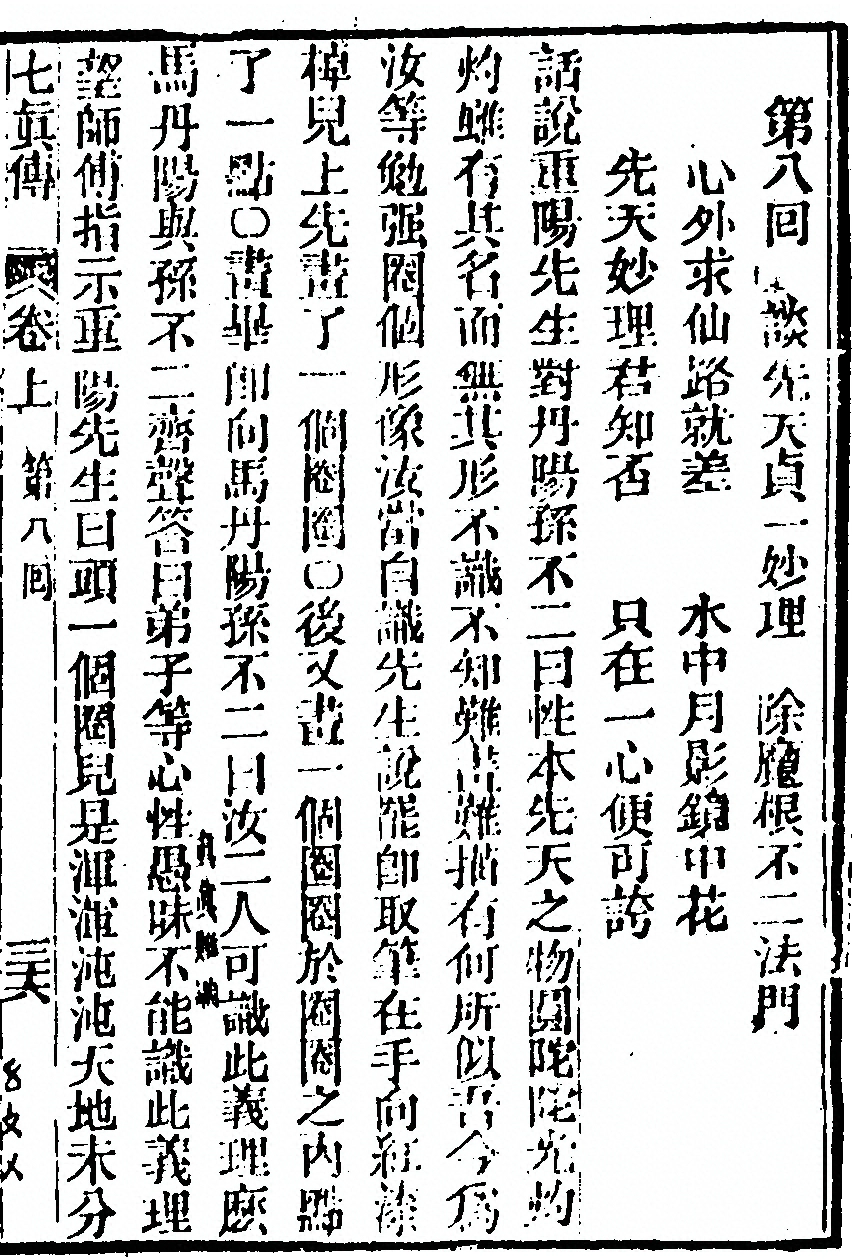 第八回 談先天貞一妙理 除魔根不二法門
心外求仙路就差 水中月影鏡中花
先天妙理君知否 只在一心便可誇
話說重陽先生對丹陽孫不二曰性本先天之物圓陀陀光灼
灼雖有其名而無其形不識不知難言難描有何所似吾今為
汝等勉强圈個形像汝當自識先生說罷卽取筆在手向紅漆
棹兒上先畫了一個圈圈〇後又畫一個圈圈於圈圈之內點
了一點〇畫畢卽向馬丹陽孫不二曰汝二人可識此義理麽
馬丹陽與孫不二齊聲答曰弟子等心性愚昧不能識此義理
望師傅指示重陽先生曰頭一個圈兒是渾渾沌沌天地未分
七眞傳 卷上 第八回 三六